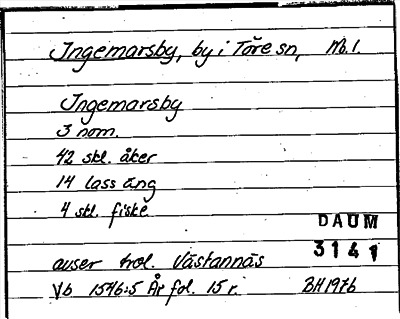 Ingemarsby, by i Töre sn, Nb.
Ingemarsby
3 nom.
42 skl. åker
14 lass äng
4 skl. fiske
DAUM
3141
avser trol. Västannäs
Vb 1546:5 År fol. 15 r. BH 1976